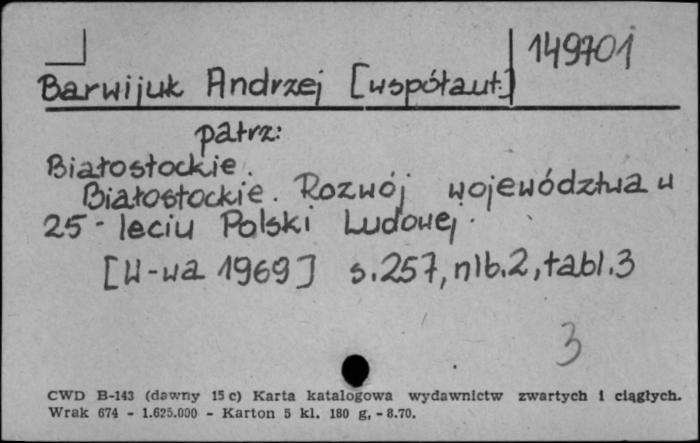 149701
Barwijuk Andrzej [współaut.]
patrz:
Białostockie.
Białostockie. Rozwój województwa w
25-leciu Polski Ludowej.
[W-wa 1969] s.257, nlb.2, tabl.3
3
CWD B-143 (dawny 15 c) Karta katalogowa wydawnictw zwartych i ciągłych.
Wrak 674 - 1.625.000 - Karton 5 kl. 180 g, - 8.70.